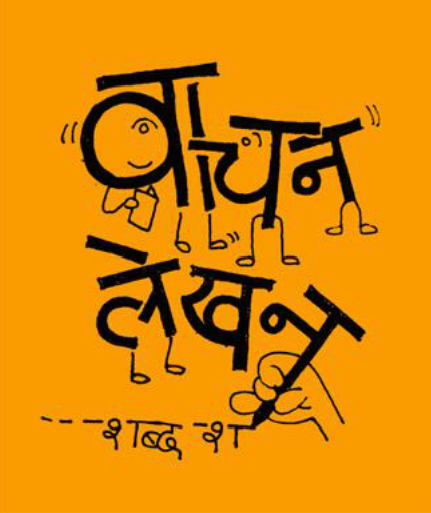 वाचन
लेखन
---शब्द श